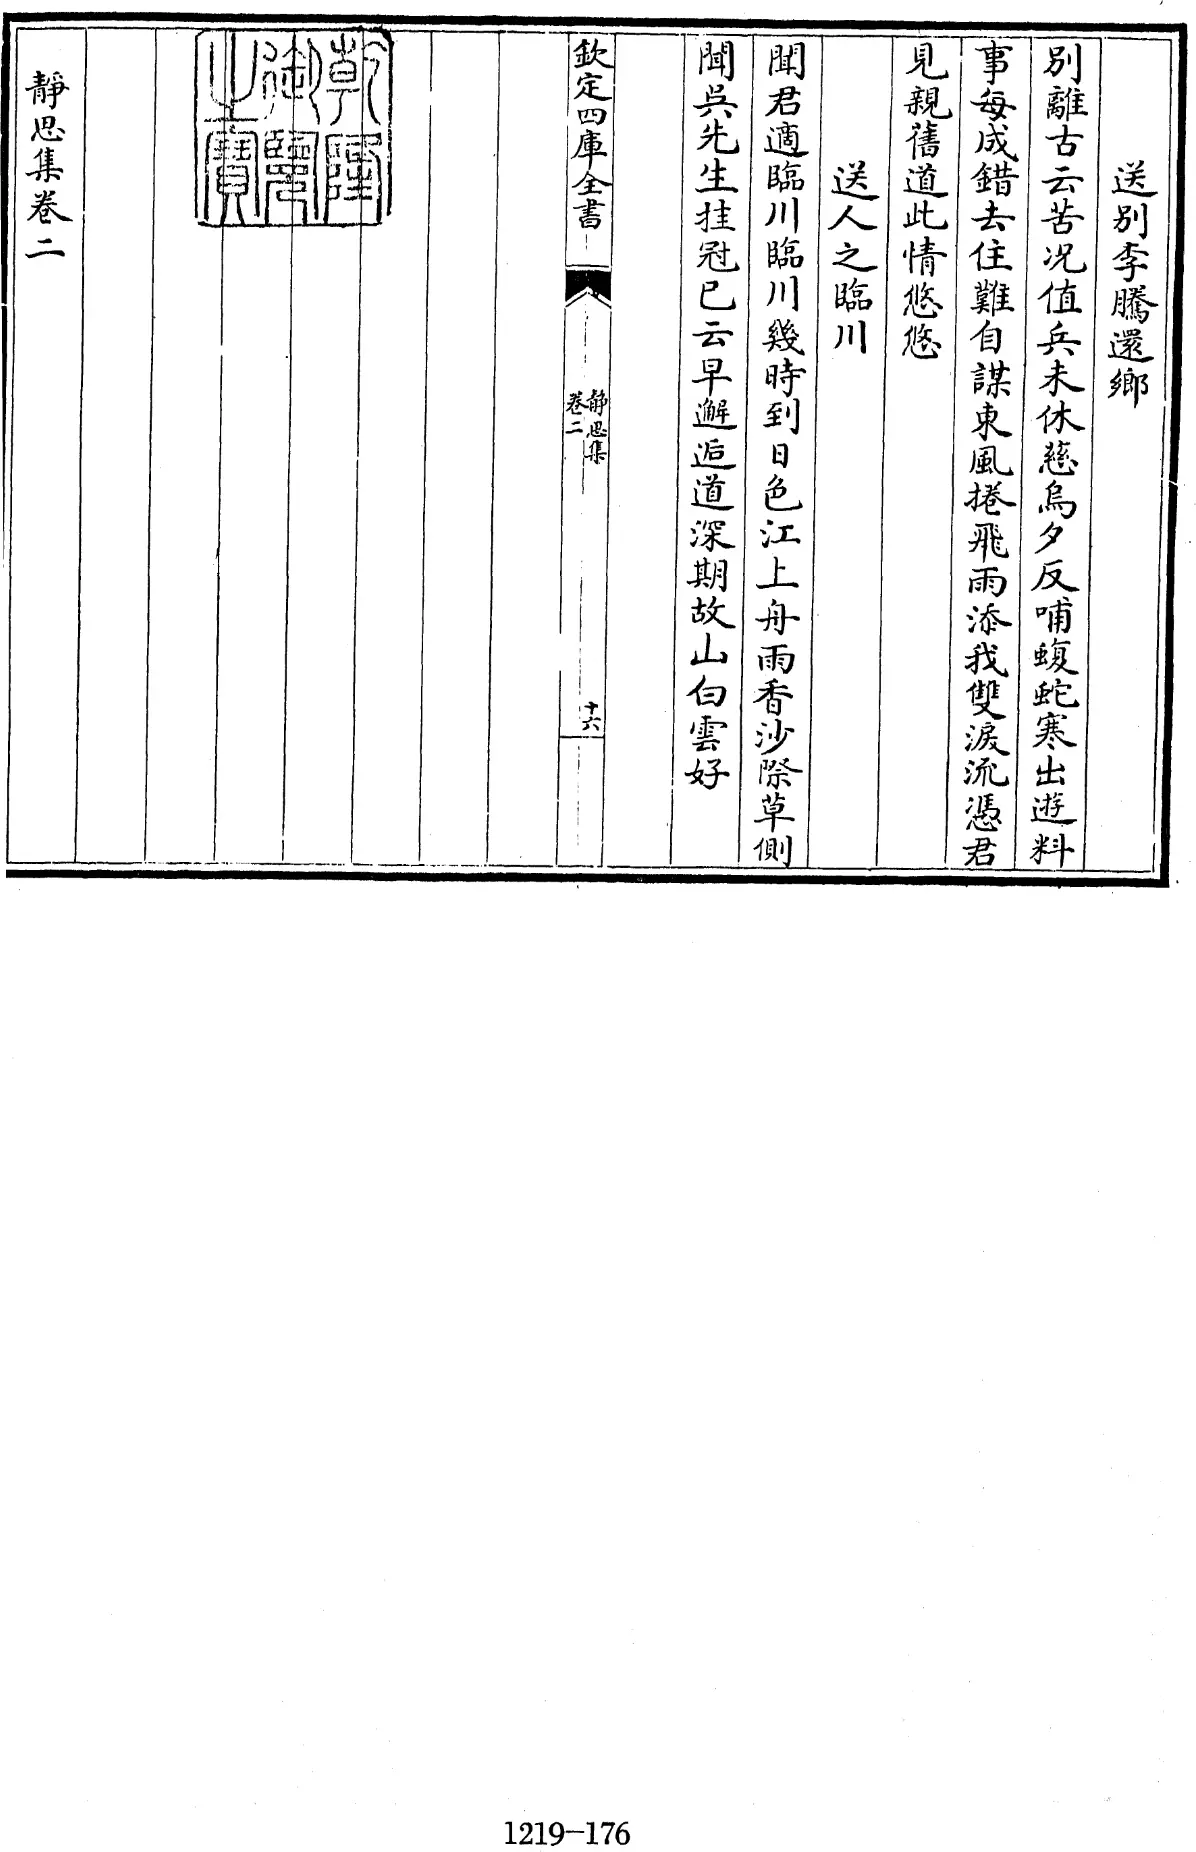 送別李騰還鄉
別離古云苦况值兵未休慈烏夕反哺蝮蛇寒出遊料
事每成錯去住難自謀東風捲飛雨添我雙淚流憑君
見親舊道此情悠悠
送人之臨川
聞君適臨川臨川幾時到日色江上舟雨香沙際草側
聞吳先生挂冠已云早邂逅道深期故山白雲好
欽定四庫全書
靜思集
卷二
十六
乾隆
御覽
之寶
靜思集卷二
1219-176